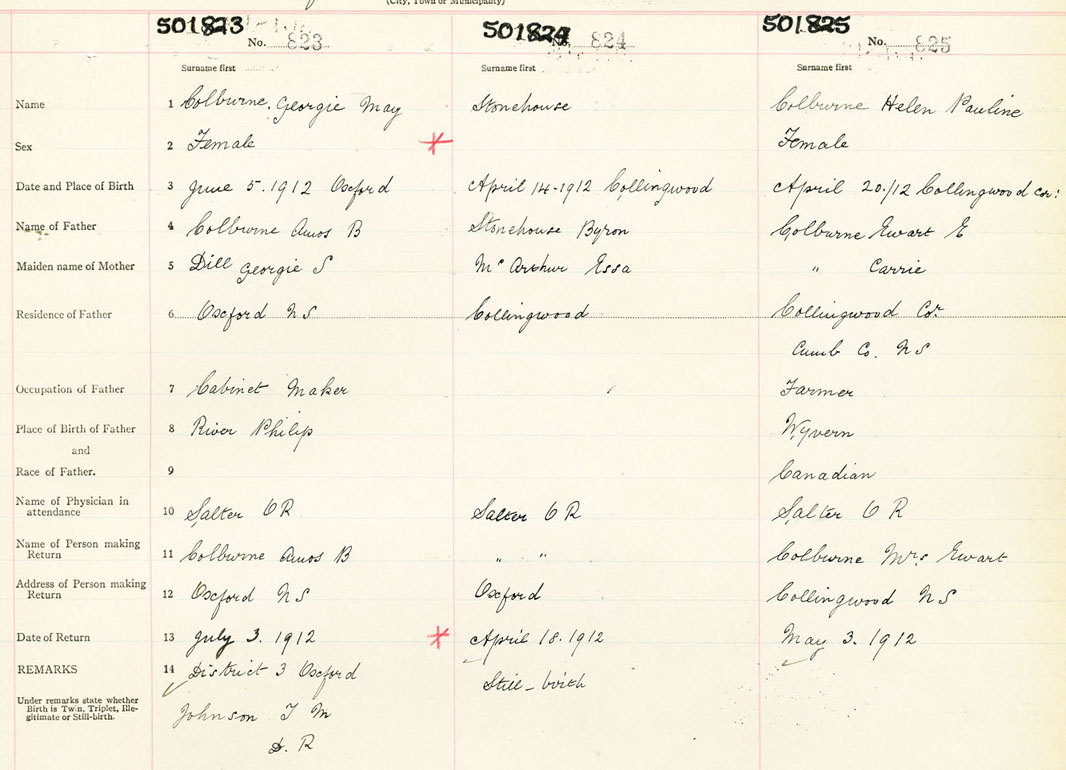 (City, Town or Municipality)
501823 501824 501825
No. 823 No. 824 No. 825
Surname first Surname first Surname first
Name 1 Colburne, Georgie May Stonehouse Colburne Helen Pauline
Sex 2 Female Female
Date and Place of Birth 3 June 5. 1912 Oxford April 14-1912 Collingwood April 20/12 Collingwood Cor:
Name of Father 4 Colburne Amos B Stonehouse Byron Colburne Ewart E
Maiden name of Mother 5 Dill Georgie S Mc Arthur Essa " Carrie
Residence of Father 6 Oxford N S Collingwood Collingwood Cor.
Cumb Co. N S
Occupation of Father 7 Cabinet Maker Farmer
Place of Birth of Father 8 River Philip Wyvern
and
Race of Father. 9 Canadian
Name of Physician in
attendance 10 Salter O R Salter O R Salter O R
Name of Person making
Return 11 Colburne Amos B " " Colburne Mrs Ewart
Address of Person making
Return 12 Oxford N S Oxford Collingwood N S
Date of Return 13 July 3. 1912 April 18. 1912 May 3. 1912
REMARKS 14 District 3 Oxford Still-birth
Under remarks state whether
Birth is Twin, Triplet, Ille-
gitimate or Still-birth.
Johnson T M
D. R